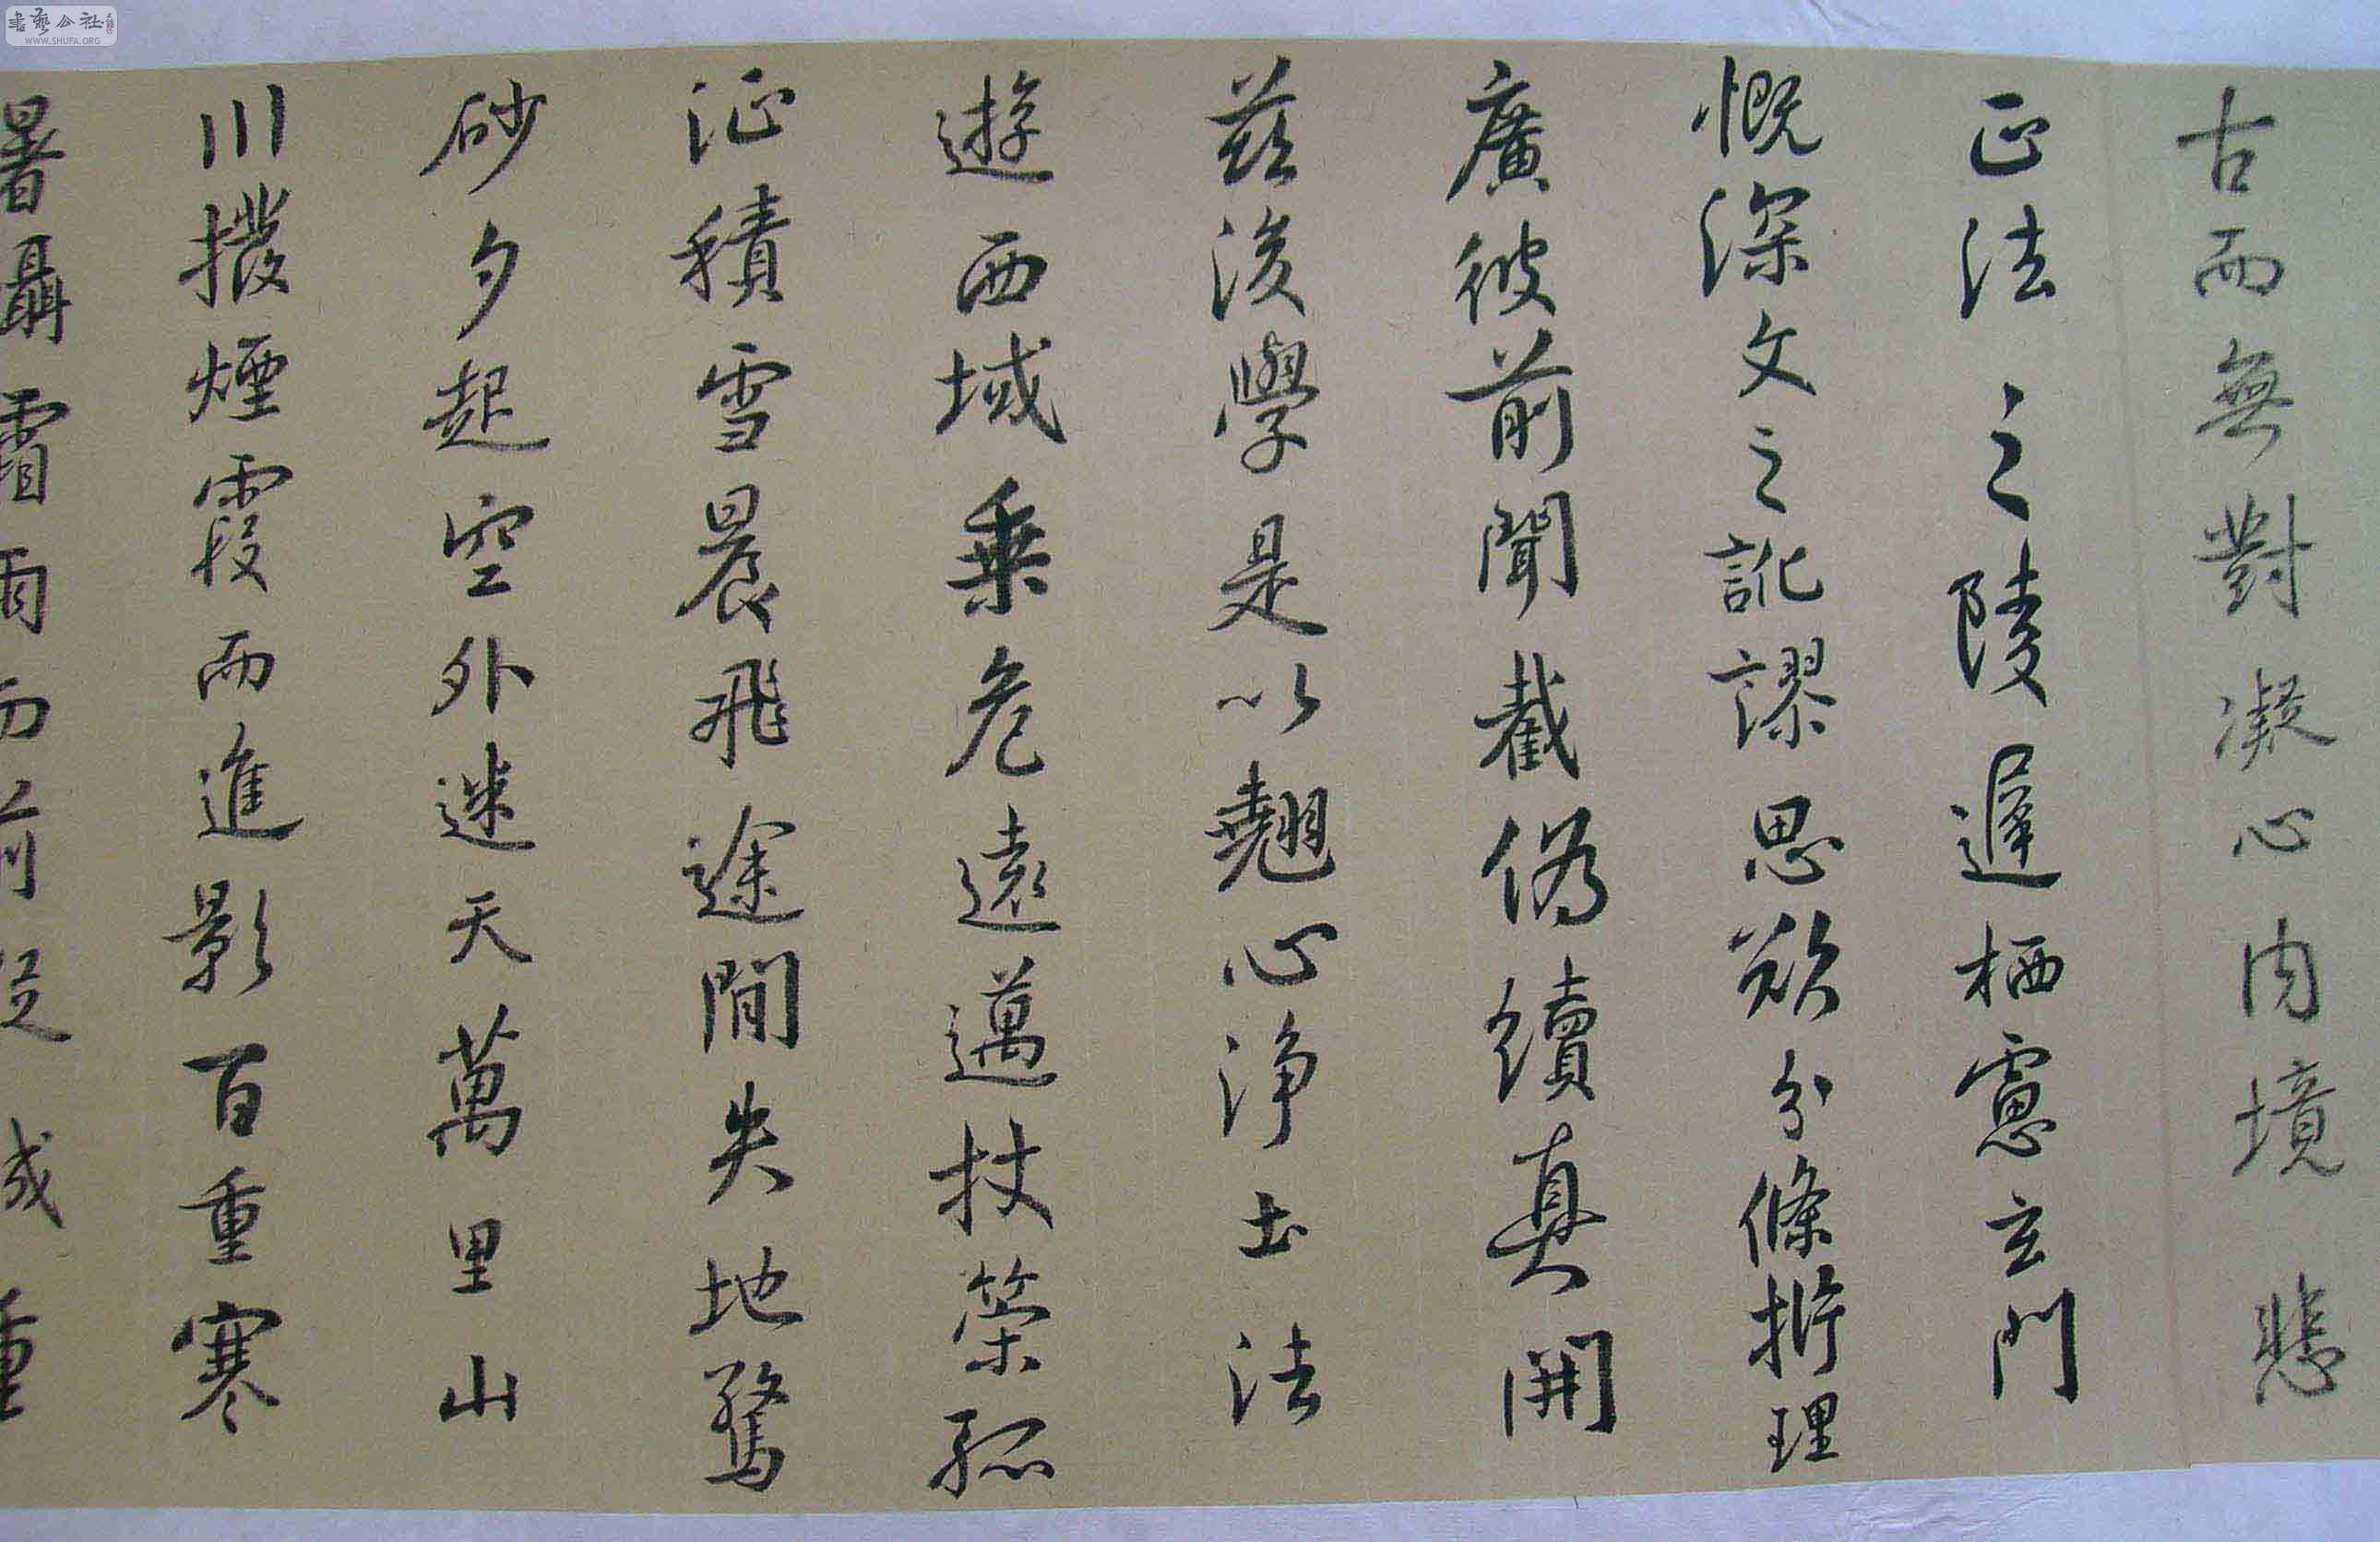 古而無對凝心內境悲
正法之陵遲栖慮玄門
慨深文之訛謬思欲分條析理
廣彼前聞截偽續真開
茲後學是以翹心淨土法
遊西域乗危遠邁杖策孤
征積雪晨飛途間失地驚
砂夕起空外迷天萬里山
川撥煙霞而進影百重寒
暑躡霜雨而前蹤誠重
書藝公社
WWW.SHUFA.ORG